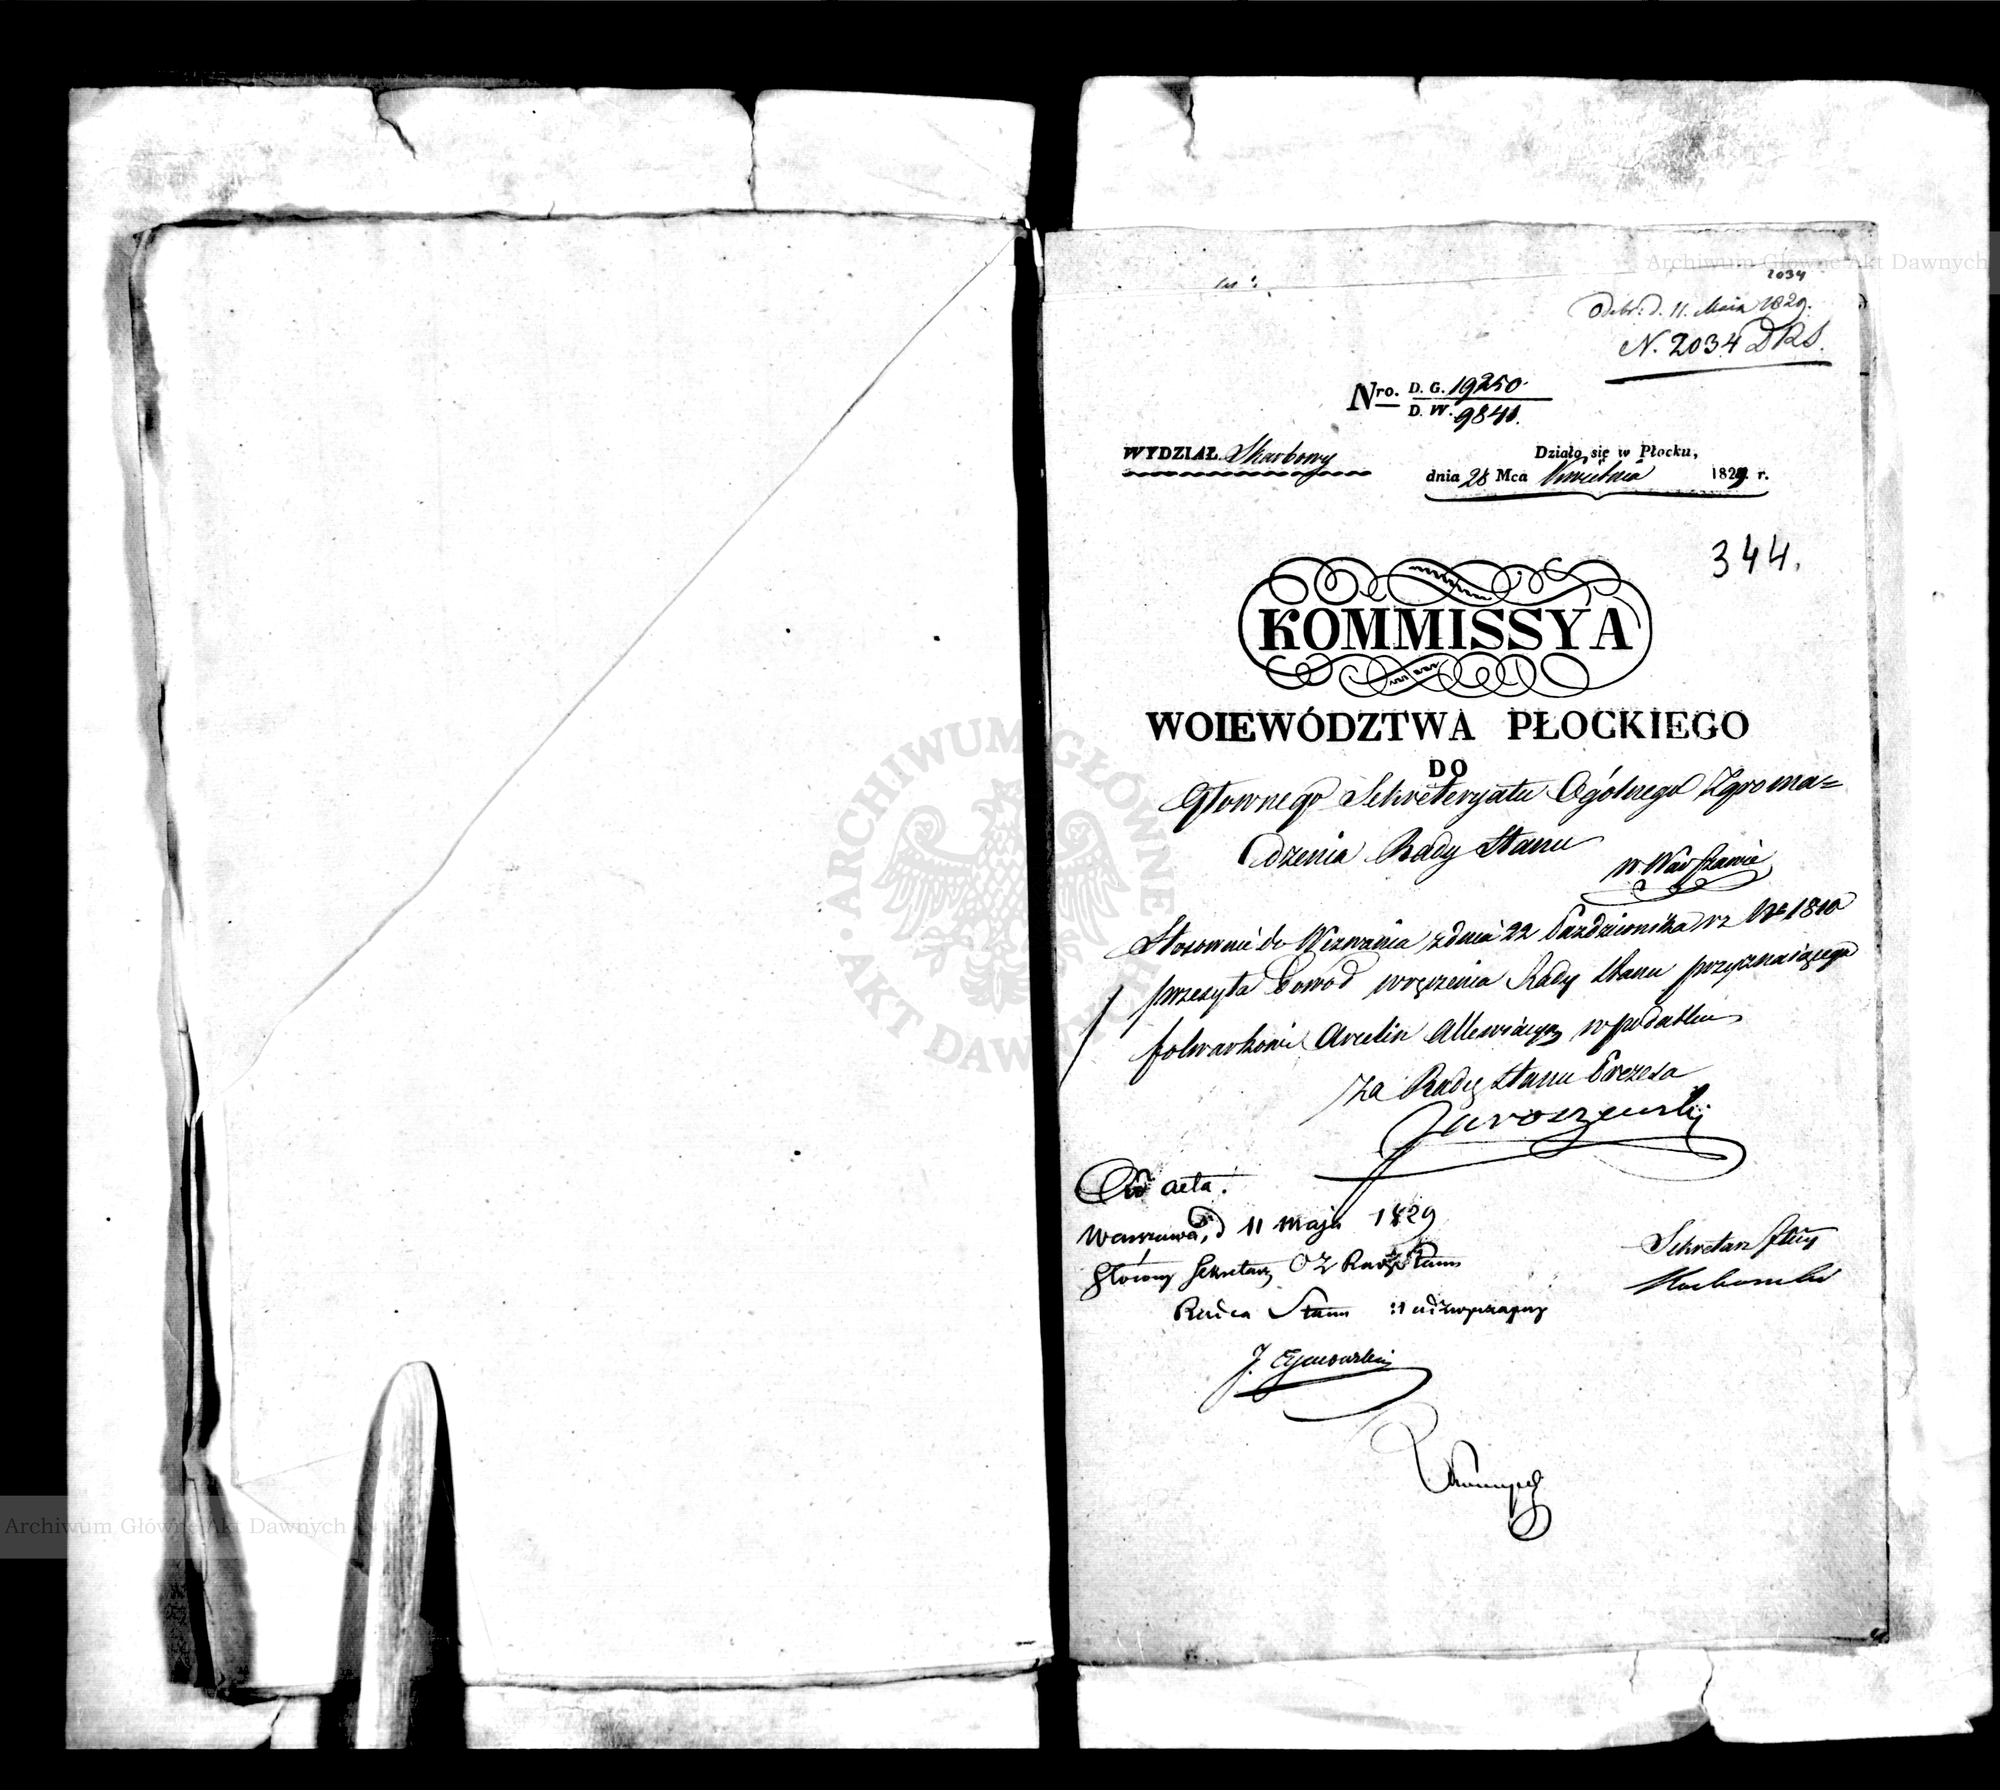 2034
Odebr: d. 11. Maia 1829.
N. 2034 DRS.
Nro. D. G. 19250.
D. W. 9841.
WYDZIAŁ Skarbowy
Działo się w Płocku,
dnia 28 Mca Kwietnia 1829 r.
344.
KOMMISSYA
WOIEWÓDZTWA PŁOCKIEGO
DO
Głownego Sekreteryatu Ogólnego Zgroma=
dzenia Rady Stanu
w Warszawie
Stosownie do Wezwania z dnia 22 Października rz Nro 1810
przesyła Dowód wręczenia Rady Stanu przyznaiącego
folwarkowi Arcelin w podatku
Za Radcę Stanu Prezesa
Jaroszewski
Ad acta.
Warszawa, d 11 maja 1829
Główny Sekretarz O Z Rady Stanu
Radca Stanu nadzwyczajny
J.
Sekretarz Jlny
ARCHIWUM GŁÓWNE AKT DAWNYCH
Archiwum Główne Akt Dawnych
Archiwum Główne Akt Dawnych